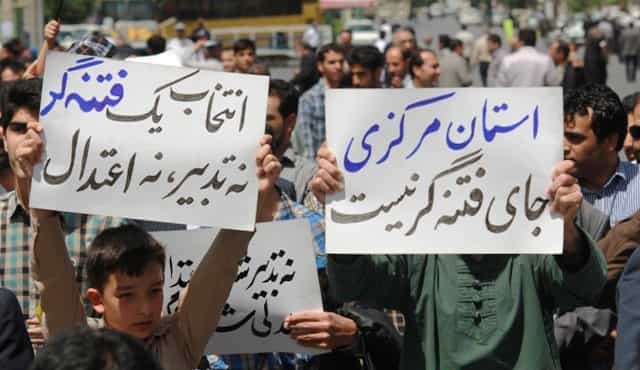 انتخاب یک فتنه‌گر
نه تدبیر، نه اعتدال
استان مرکزی
جای فتنه گر نیست
نه تدبیر